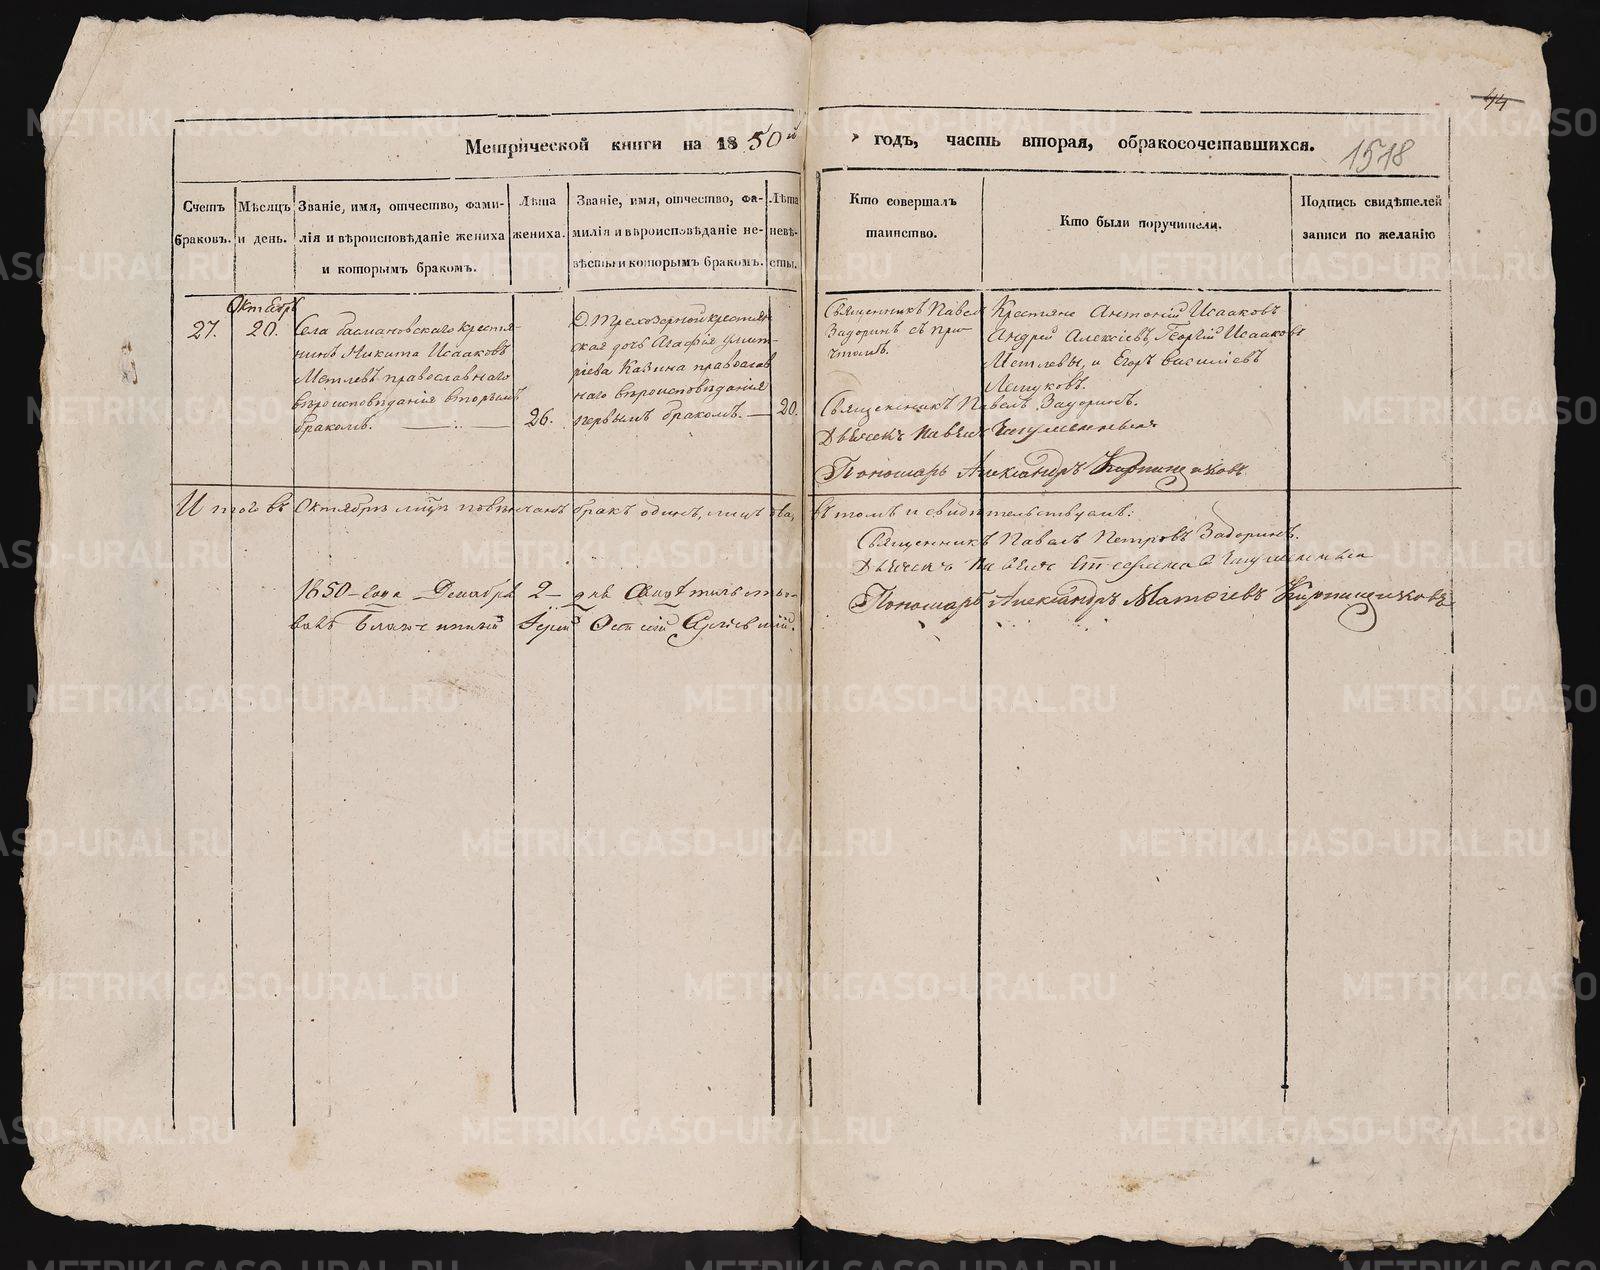 44
1518
Метрической книги на 1850й годъ, часть вторая, обракосочетавшихся.
Счетъ браковъ.
Мѣсяцъ и день.
Званіе, имя, отчество, фами-
лія и вѣроисповѣданіе жениха
и которымъ бракомъ.
Лѣта
жениха.
Званіе, имя, отчество, фа-
милія и вѣроисповѣданіе не-
вѣсты и которымъ бракомъ.
Лѣта
невѣ-
сты.
Кто совершалъ
таинство.
Кто были поручители.
Подпись свидѣтелей
записи по желанію
Октябрь
27.
20.
Села Басмановскаго крестья-
нинъ Никита Исааковъ
Метлевъ православнаго
вѣроисповѣданія вторымъ
бракомъ.
26.
Д. Трехозерной крестьян
ская дочь Агафія Дмит-
ріева Казина православ
наго вѣроисповѣданія
первымъ бракомъ. — 20.
Священникъ Павелъ
Задоринъ съ при-
чтомъ.
Крестьяне Антоній Исааковъ
Андрей Алексіевъ, Георгій Исааковъ
Метлевы, и Егоръ Васильевъ
Священникъ Павелъ Задоринъ.
Дьячекъ Павелъ
Пономарь Александръ Кирпищиковъ
Итого въ Октябрѣ мцѣ повѣнчанъ бракъ одинъ, лицъ два, въ томъ и свидѣтельствуемъ:
Священникъ Павелъ Петровъ Задоринъ.
Дьячекъ Павелъ
Пономарь Александръ Матѳіевъ Кирпищиковъ
1850 года Декабря 2 дня Свидѣтельство-
валъ Благочинный Іерей